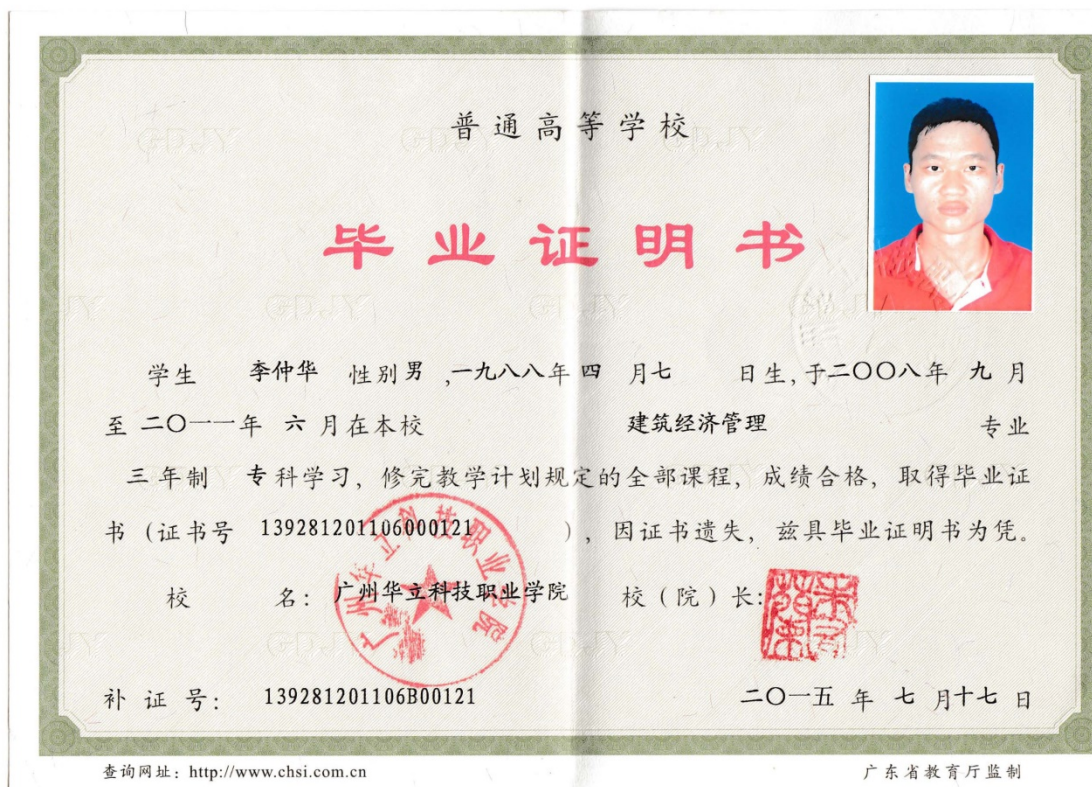 普通高等学校
毕业证明书
学生 李仲华 性别 男 ,一九八八年 四 月七 日生,于二〇〇八年 九 月
至 二〇一一年 六 月在本校 建筑经济管理 专业
三 年制 专科学习，修完教学计划规定的全部课程，成绩合格，取得毕业证
书（证书号 139281201106000121 ），因证书遗失，兹具毕业证明书为凭。
校 名：广州华立科技职业学院 校（院）长:
广州华立科技职业学院
补 证 号： 139281201106B00121 二〇一五 年 七 月十七 日
查询网址：http://www.chsi.com.cn 广东省教育厅监制
GDJY GDJY GDJY
GDJY GDJY GDJY
GDJY GDJY GDJY